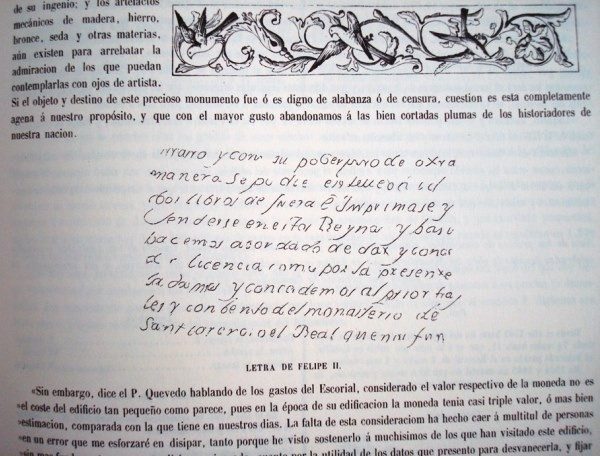 de su ingenio; y los artefactos
mecánicos de madera, hierro,
bronce, seda y otras materias,
aún existen para arrebatar la
admiracion de los que puedan
contemplarlas con ojos de artista.
Si el objeto y destino de este precioso monumento fue ó es digno de alabanza ó de censura, cuestion es esta completamente
agena á nuestro propósito, y que con el mayor gusto abandonamos á las bien cortadas plumas de los historiadores de
nuestra nacion.
y con su de otra
manera se
libros de fuera e Imprimase y
Venderse en estos Reynos y
hacemos acordado de dar y
licencia como por la presente
la damos y concedemos al prior
y conbento del monasterio de
Sant el Real
LETRA DE FELIPE II.
«Sin embargo, dice el P. Quevedo hablando de los gastos del Escorial, considerado el valor respectivo de la moneda no es
»el coste del edificio tan pequeño como parece, pues en la época de su edificacion la moneda tenia casi triple valor, ó mas bien
»estimacion, comparada con la que tiene en nuestros dias. La falta de esta consideraciom ha hecho caer á multitul de personas
»en un error que me esforzaré en disipar, tanto porque he visto sostenerlo á muchisimos de los que han visitado este edificio,
por la utilidad de los datos que presento para desvanecerla, y fijar